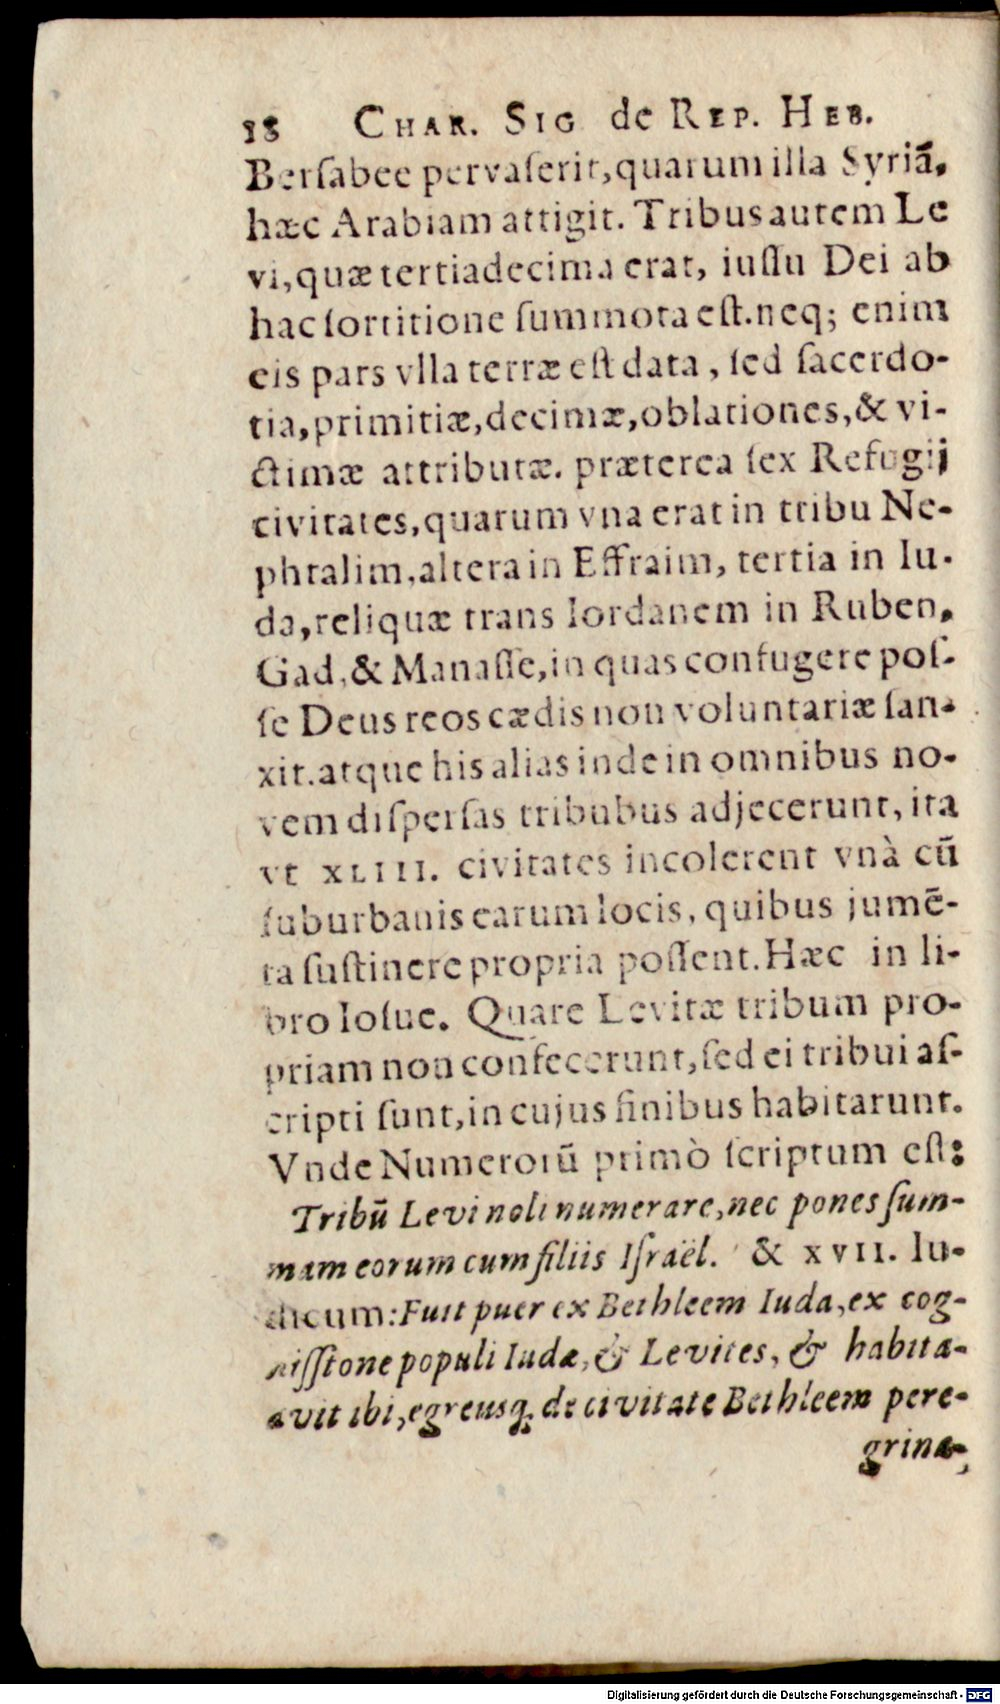 18 CHAR. SIG de REP. HEB.
Berſabee pervaſerit, quarum illa Syriā,
hæc Arabiam attigit. Tribus autem Le
vi, quæ tertiadecima erat, iuſſu Dei ab
hac ſortitione ſummota eſt. neq; enim
eis pars vlla terræ eſt data, ſed ſacerdo-
tia, primitiæ, decimæ, oblationes, & vi-
ctimæ attributæ. præterea ſex Refugij
civitates, quarum vna erat in tribu Ne-
phtalim, altera in Effraim, tertia in Iu-
da, reliquæ trans Iordanem in Ruben,
Gad, & Manaſſe, in quas confugere poſ-
ſe Deus reos cædis non voluntariæ ſan-
xit. atque his alias inde in omnibus no-
vem diſperſas tribubus adjecerunt, ita
vt XLIII. civitates incolerent vnà cū
ſuburbanis earum locis, quibus jumē-
ta ſuſtinere propria poſſent. Hæc in li-
bro Ioſue. Quare Levitæ tribum pro-
priam non confecerunt, ſed ei tribui aſ-
cripti ſunt, in cujus finibus habitarunt.
Vnde Numerorū primò ſcriptum eſt:
Tribū Levi noli numerare, nec pones ſum-
mam eorum cum filiis Iſraël. & XVII. Iu-
dicum: Fuit puer ex Bethleem Iuda, ex cog-
niſſione populi Iudæ, & Levites, & habita-
avit ibi, egreuſq́; de civitate Bethleem pere-
grina-
Digitalisierung gefördert durch die Deutsche Forschungsgemeinschaft - DFG